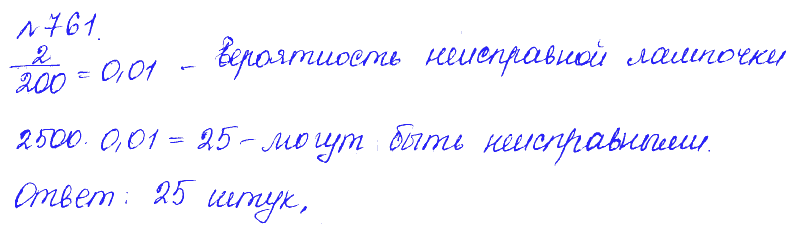 №761.
2/200 = 0,01 - Вероятность неисправной лампочки
2500 · 0,01 = 25 - могут быть неисправными.
Ответ: 25 штук.